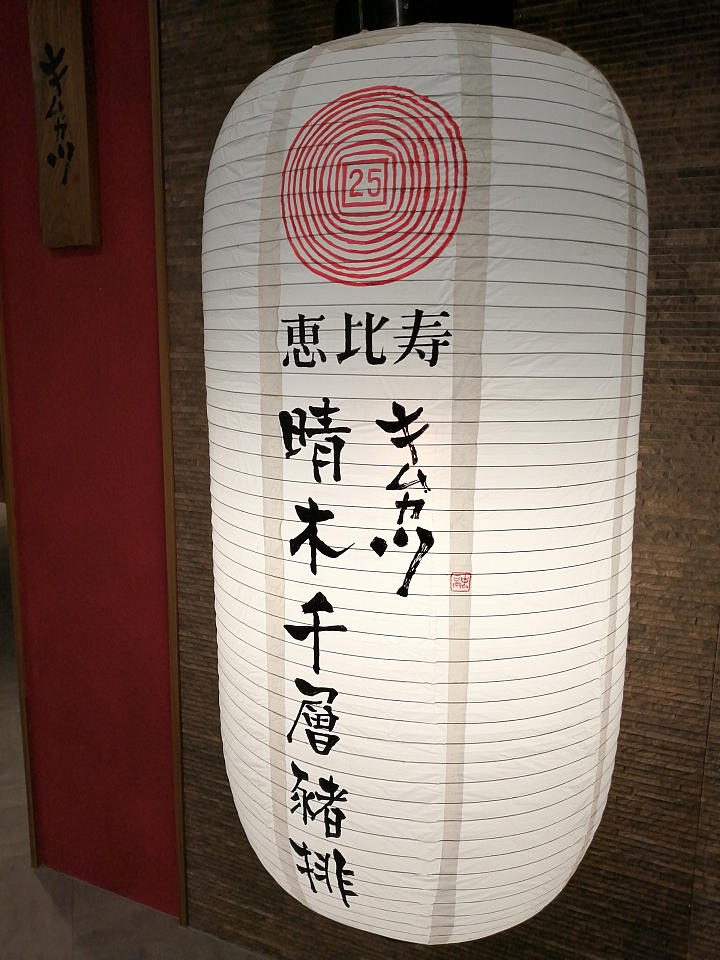 キムカツ
25
恵比寿
キムカツ
晴木千層豬排